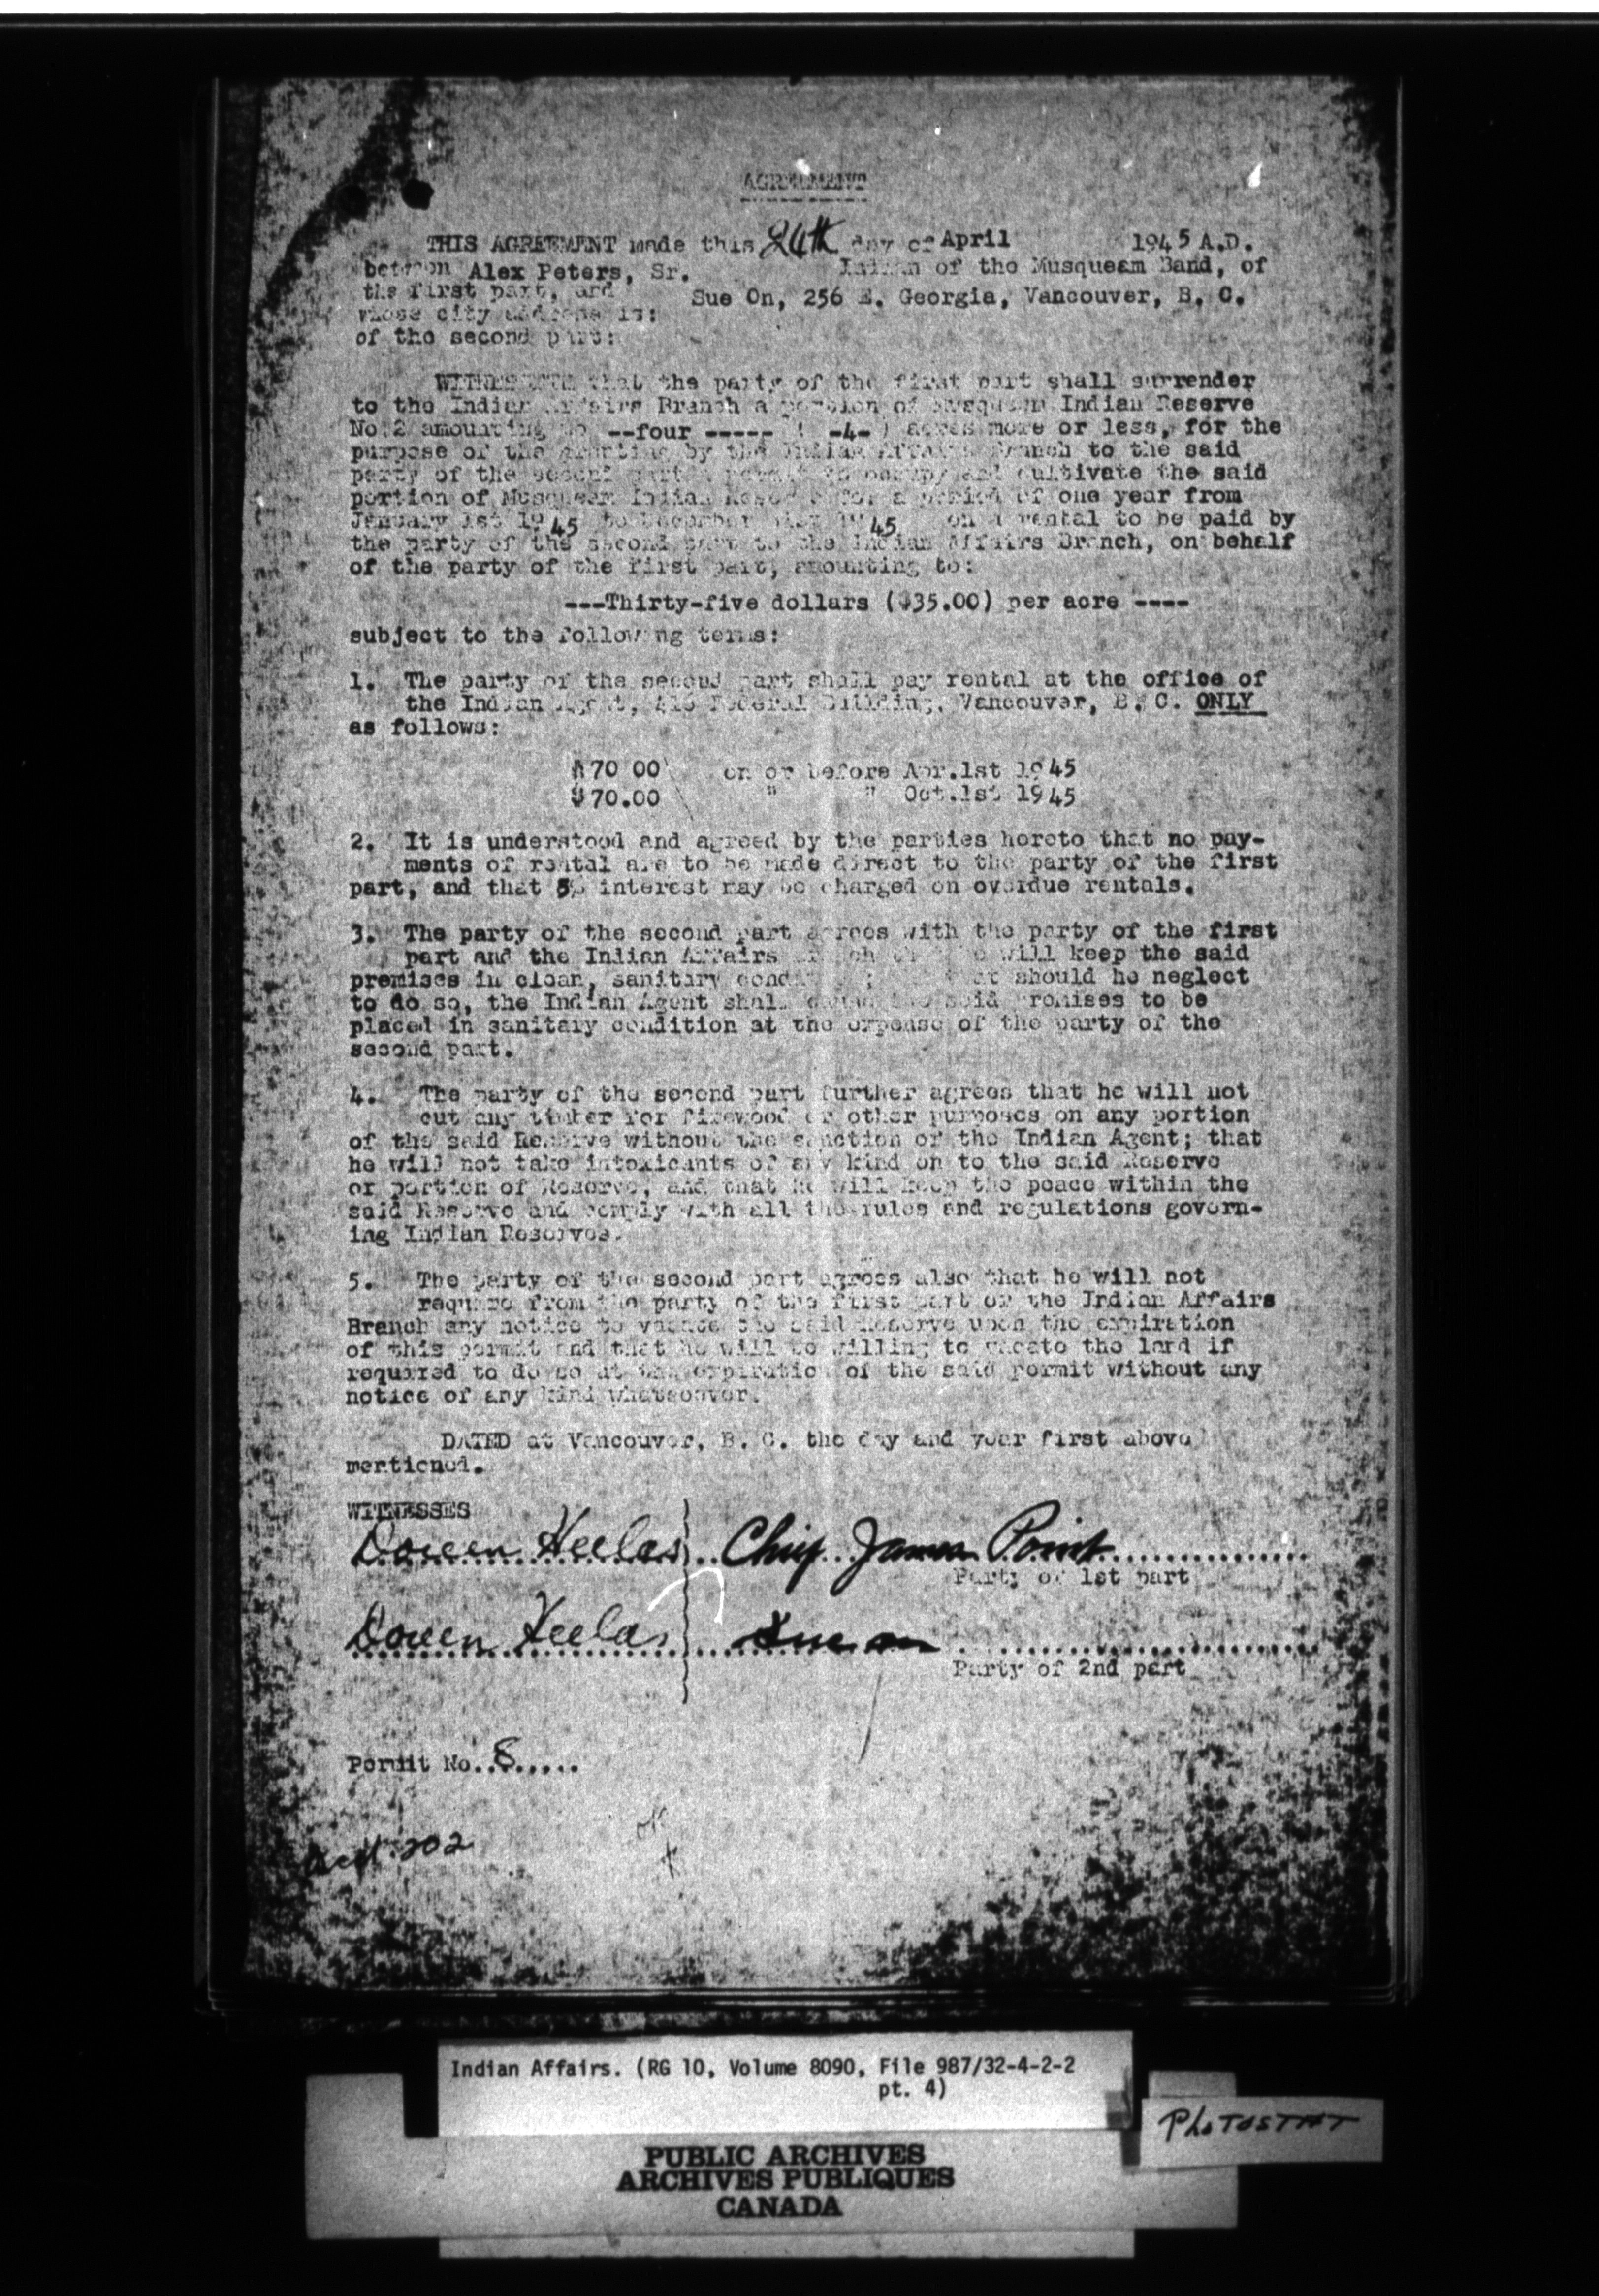 AGREEMENT
THIS AGREEMENT made this 24th day of April 1945 A.D.
between Alex Peters, Sr. Indian of the Musqueam Band, of
the first part, and Sue On, 256 E. Georgia, Vancouver, B. C.
whose city address is:
of the second part:
WITNESSETH that the party of the first part shall surrender
to the Indian Affairs Branch a portion of Musqueam Indian Reserve
No.2 amounting to --four ----- ( -4- ) acres more or less, for the
purpose of the granting by the Indian Affairs Branch to the said
party of the second part a permit to occupy and cultivate the said
portion of Musqueam Indian Reserve for a period of one year from
January 1st 1945 to December 31st 1945 on a rental to be paid by
the party of the second part to the Indian Affairs Branch, on behalf
of the party of the first part, amounting to:
---Thirty-five dollars ($35.00) per acre ----
subject to the following terms:
1. The party of the second part shall pay rental at the office of
the Indian Agent, Federal Building, Vancouver, B. C. ONLY
as follows:
$70 00 on or before Apr.1st 1945
$70.00 " " Oct.1st 1945
2. It is understood and agreed by the parties hereto that no pay-
ments of rental are to be made direct to the party of the first
part, and that 5% interest may be charged on overdue rentals.
3. The party of the second part agrees with the party of the first
part and the Indian Affairs Branch will keep the said
premises in clean, sanitary condition; that should he neglect
to do so, the Indian Agent shall cause the said premises to be
placed in sanitary condition at the expense of the party of the
second part.
4. The party of the second part further agrees that he will not
cut any timber for firewood or other purposes on any portion
of the said Reserve without the sanction of the Indian Agent; that
he will not take intoxicants of any kind on to the said Reserve
or portion of Reserve, and that he will keep the peace within the
said Reserve and comply with all the rules and regulations govern-
ing Indian Reserves.
5. The party of the second part agrees also that he will not
require from the party of the first part or the Indian Affairs
Branch any notice to vacate the said Reserve upon the expiration
of this permit and that he will be willing to vacate the land if
required to do so at the expiration of the said permit without any
notice of any kind whatsoever.
DATED at Vancouver, B. C. the day and year first above
mentioned.
WITNESSES
Doreen Heelas Chief James Point
Party of 1st part
Doreen Heelas Sue on
Party of 2nd part
Permit No. 8
202
Indian Affairs. (RG 10, Volume 8090, File 987/32-4-2-2
pt. 4)
PHOTOSTAT
PUBLIC ARCHIVES
ARCHIVES PUBLIQUES
CANADA